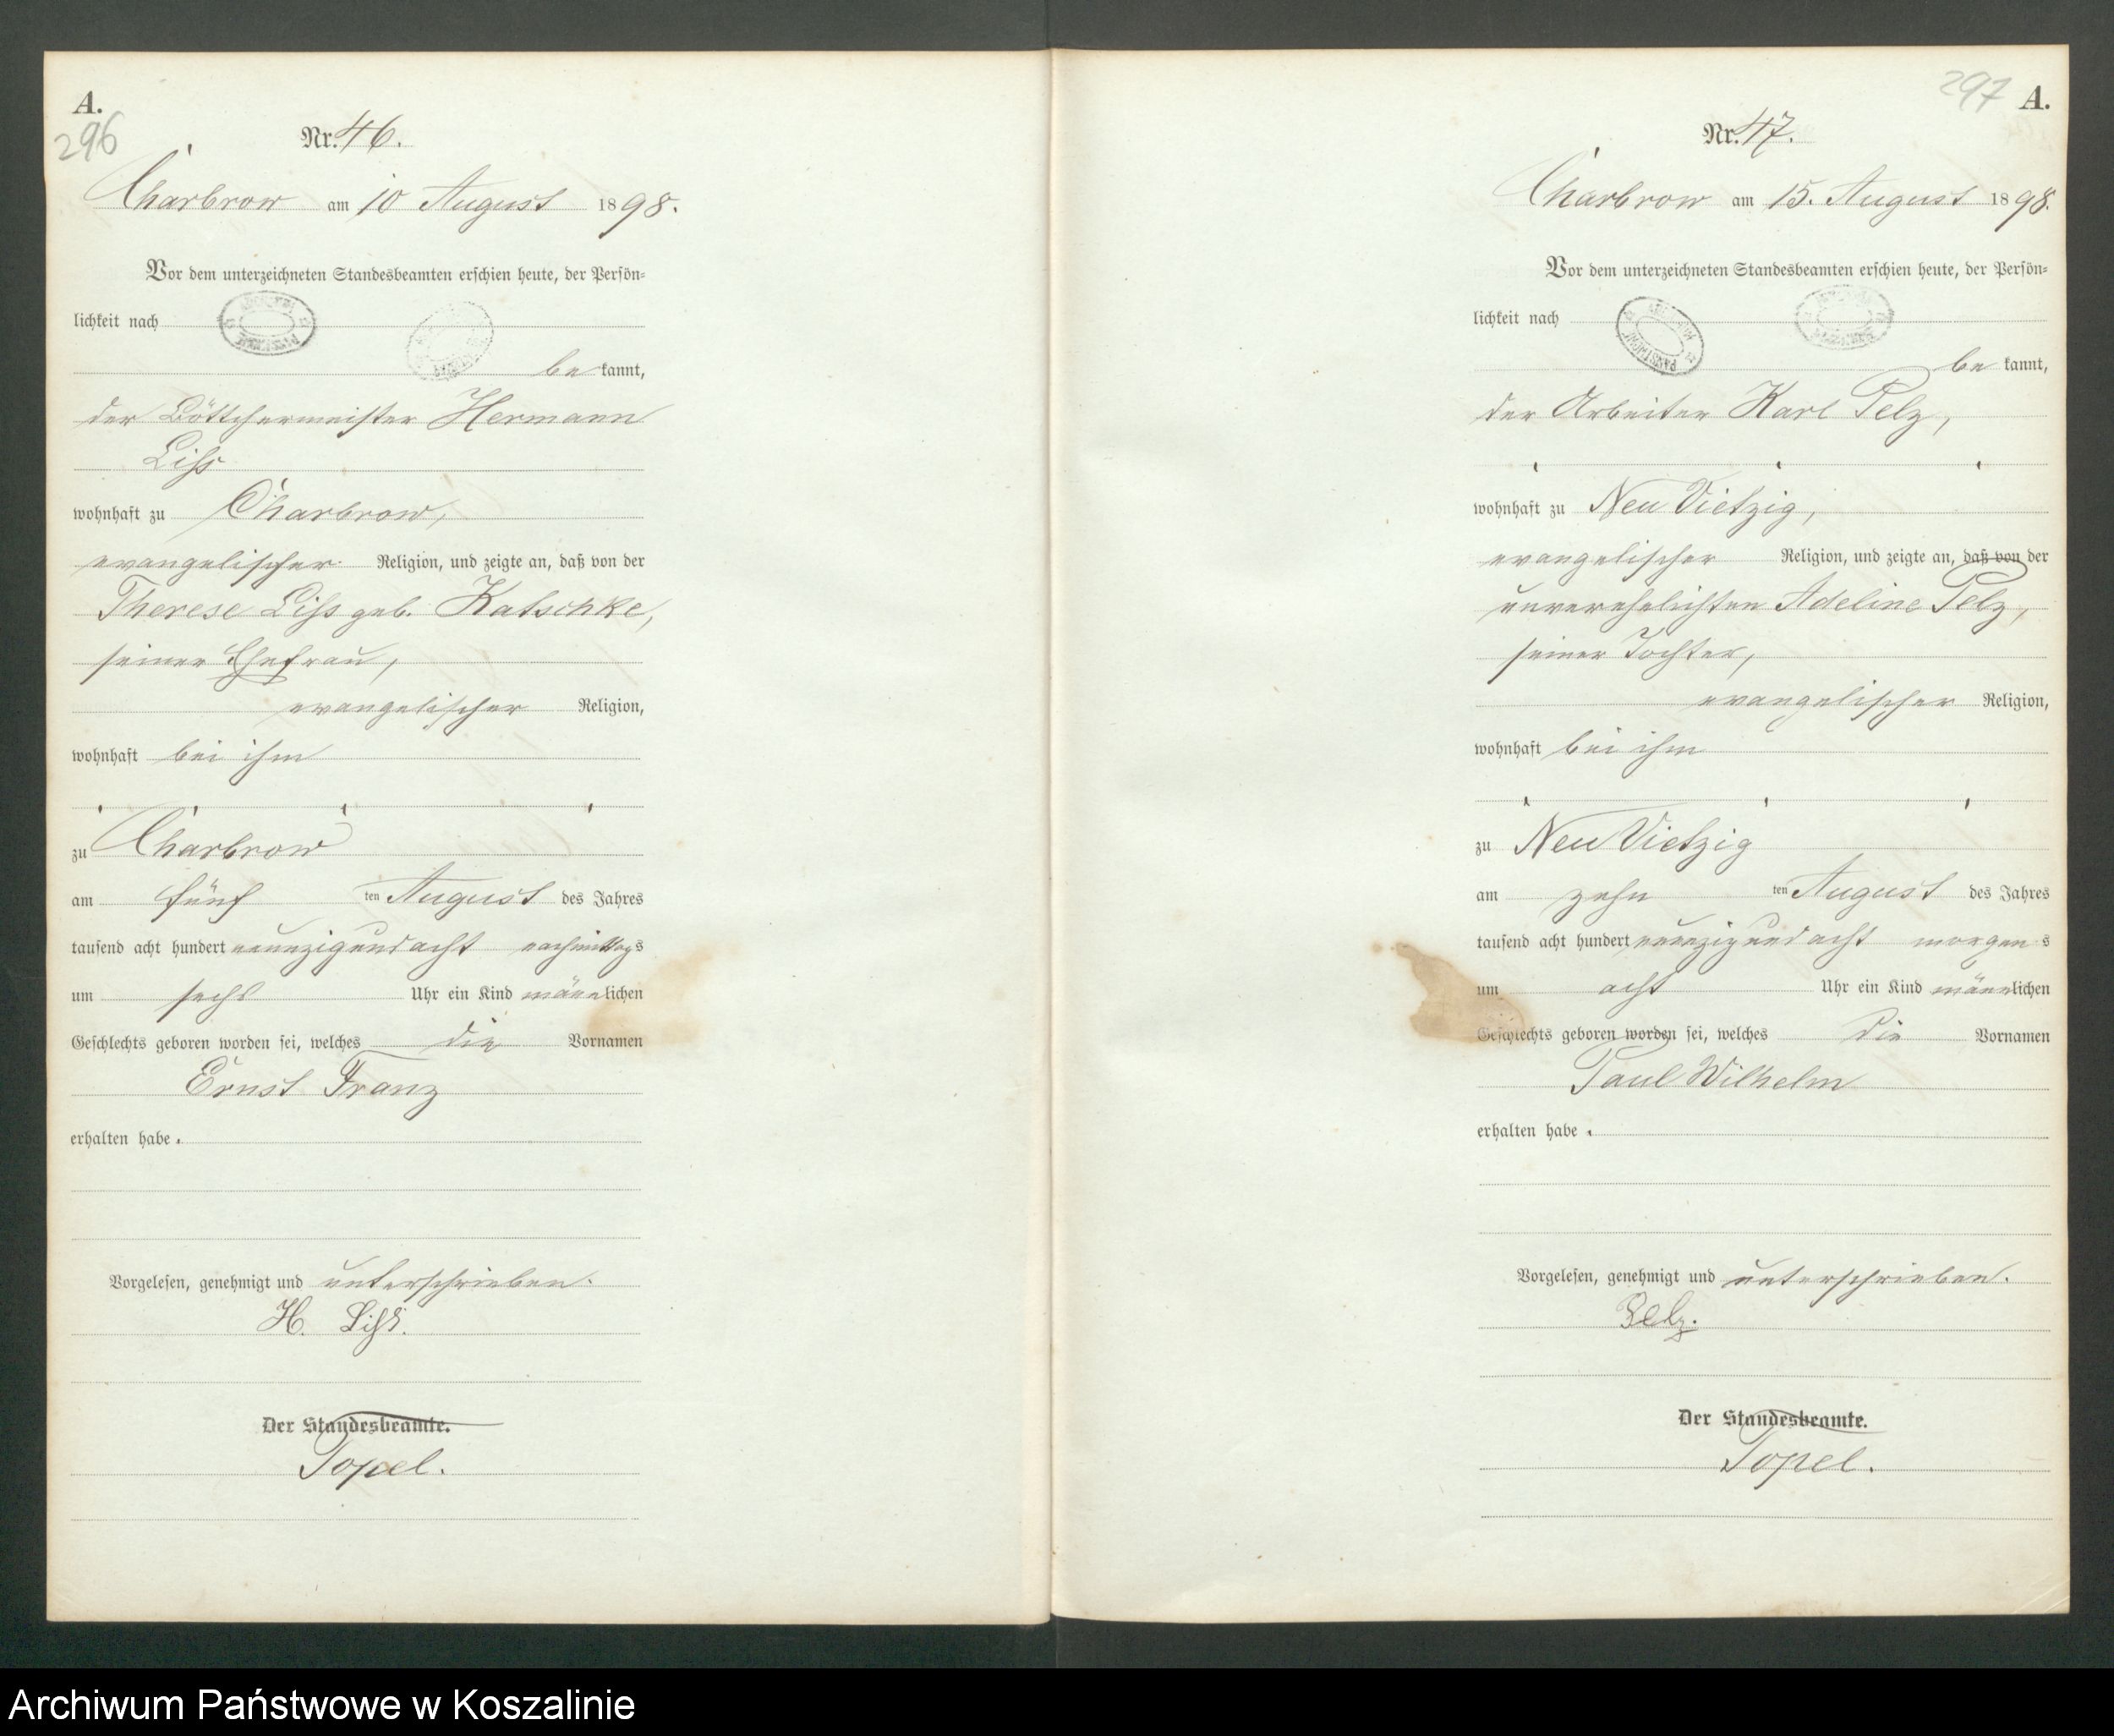 A.
296
Nr. 46.
Charbrow am 10 August 1898.
Vor dem unterzeichneten Standesbeamten erschien heute, der Persön-
lichkeit nach
be kannt,
der Böttchermeister Hermann
Liss
wohnhaft zu Charbrow,
evangelischer Religion, und zeigte an, daß von der
Therese Liss geb. Katschke,
seiner Ehefrau,
evangelischer Religion,
wohnhaft bei ihm
zu Charbrow
am fünf ten August des Jahres
tausend acht hundert neunzig und acht nachmittags
um sechs Uhr ein Kind männlichen
Geschlechts geboren worden sei, welches die Vornamen
Ernst Franz
erhalten habe.
Vorgelesen, genehmigt und unterschrieben.
H. Liss.
Der Standesbeamte.
Topel.
297 A.
Nr. 47.
Charbrow am 15. August 1898.
Vor dem unterzeichneten Standesbeamten erschien heute, der Persön-
lichkeit nach
be kannt,
der Arbeiter Karl Pelz,
wohnhaft zu Neu Vietzig,
evangelischer Religion, und zeigte an, daß von der
unverehelichten Adeline Pelz,
seiner Tochter,
evangelischer Religion,
wohnhaft bei ihm
zu Neu Vietzig
am zehn ten August des Jahres
tausend acht hundert neunzig und acht morgens
um acht Uhr ein Kind männlichen
Geschlechts geboren worden sei, welches die Vornamen
Paul Wilhelm
erhalten habe.
Vorgelesen, genehmigt und unterschrieben.
Pelz.
Der Standesbeamte.
Topel.
Archiwum Państwowe w Koszalinie